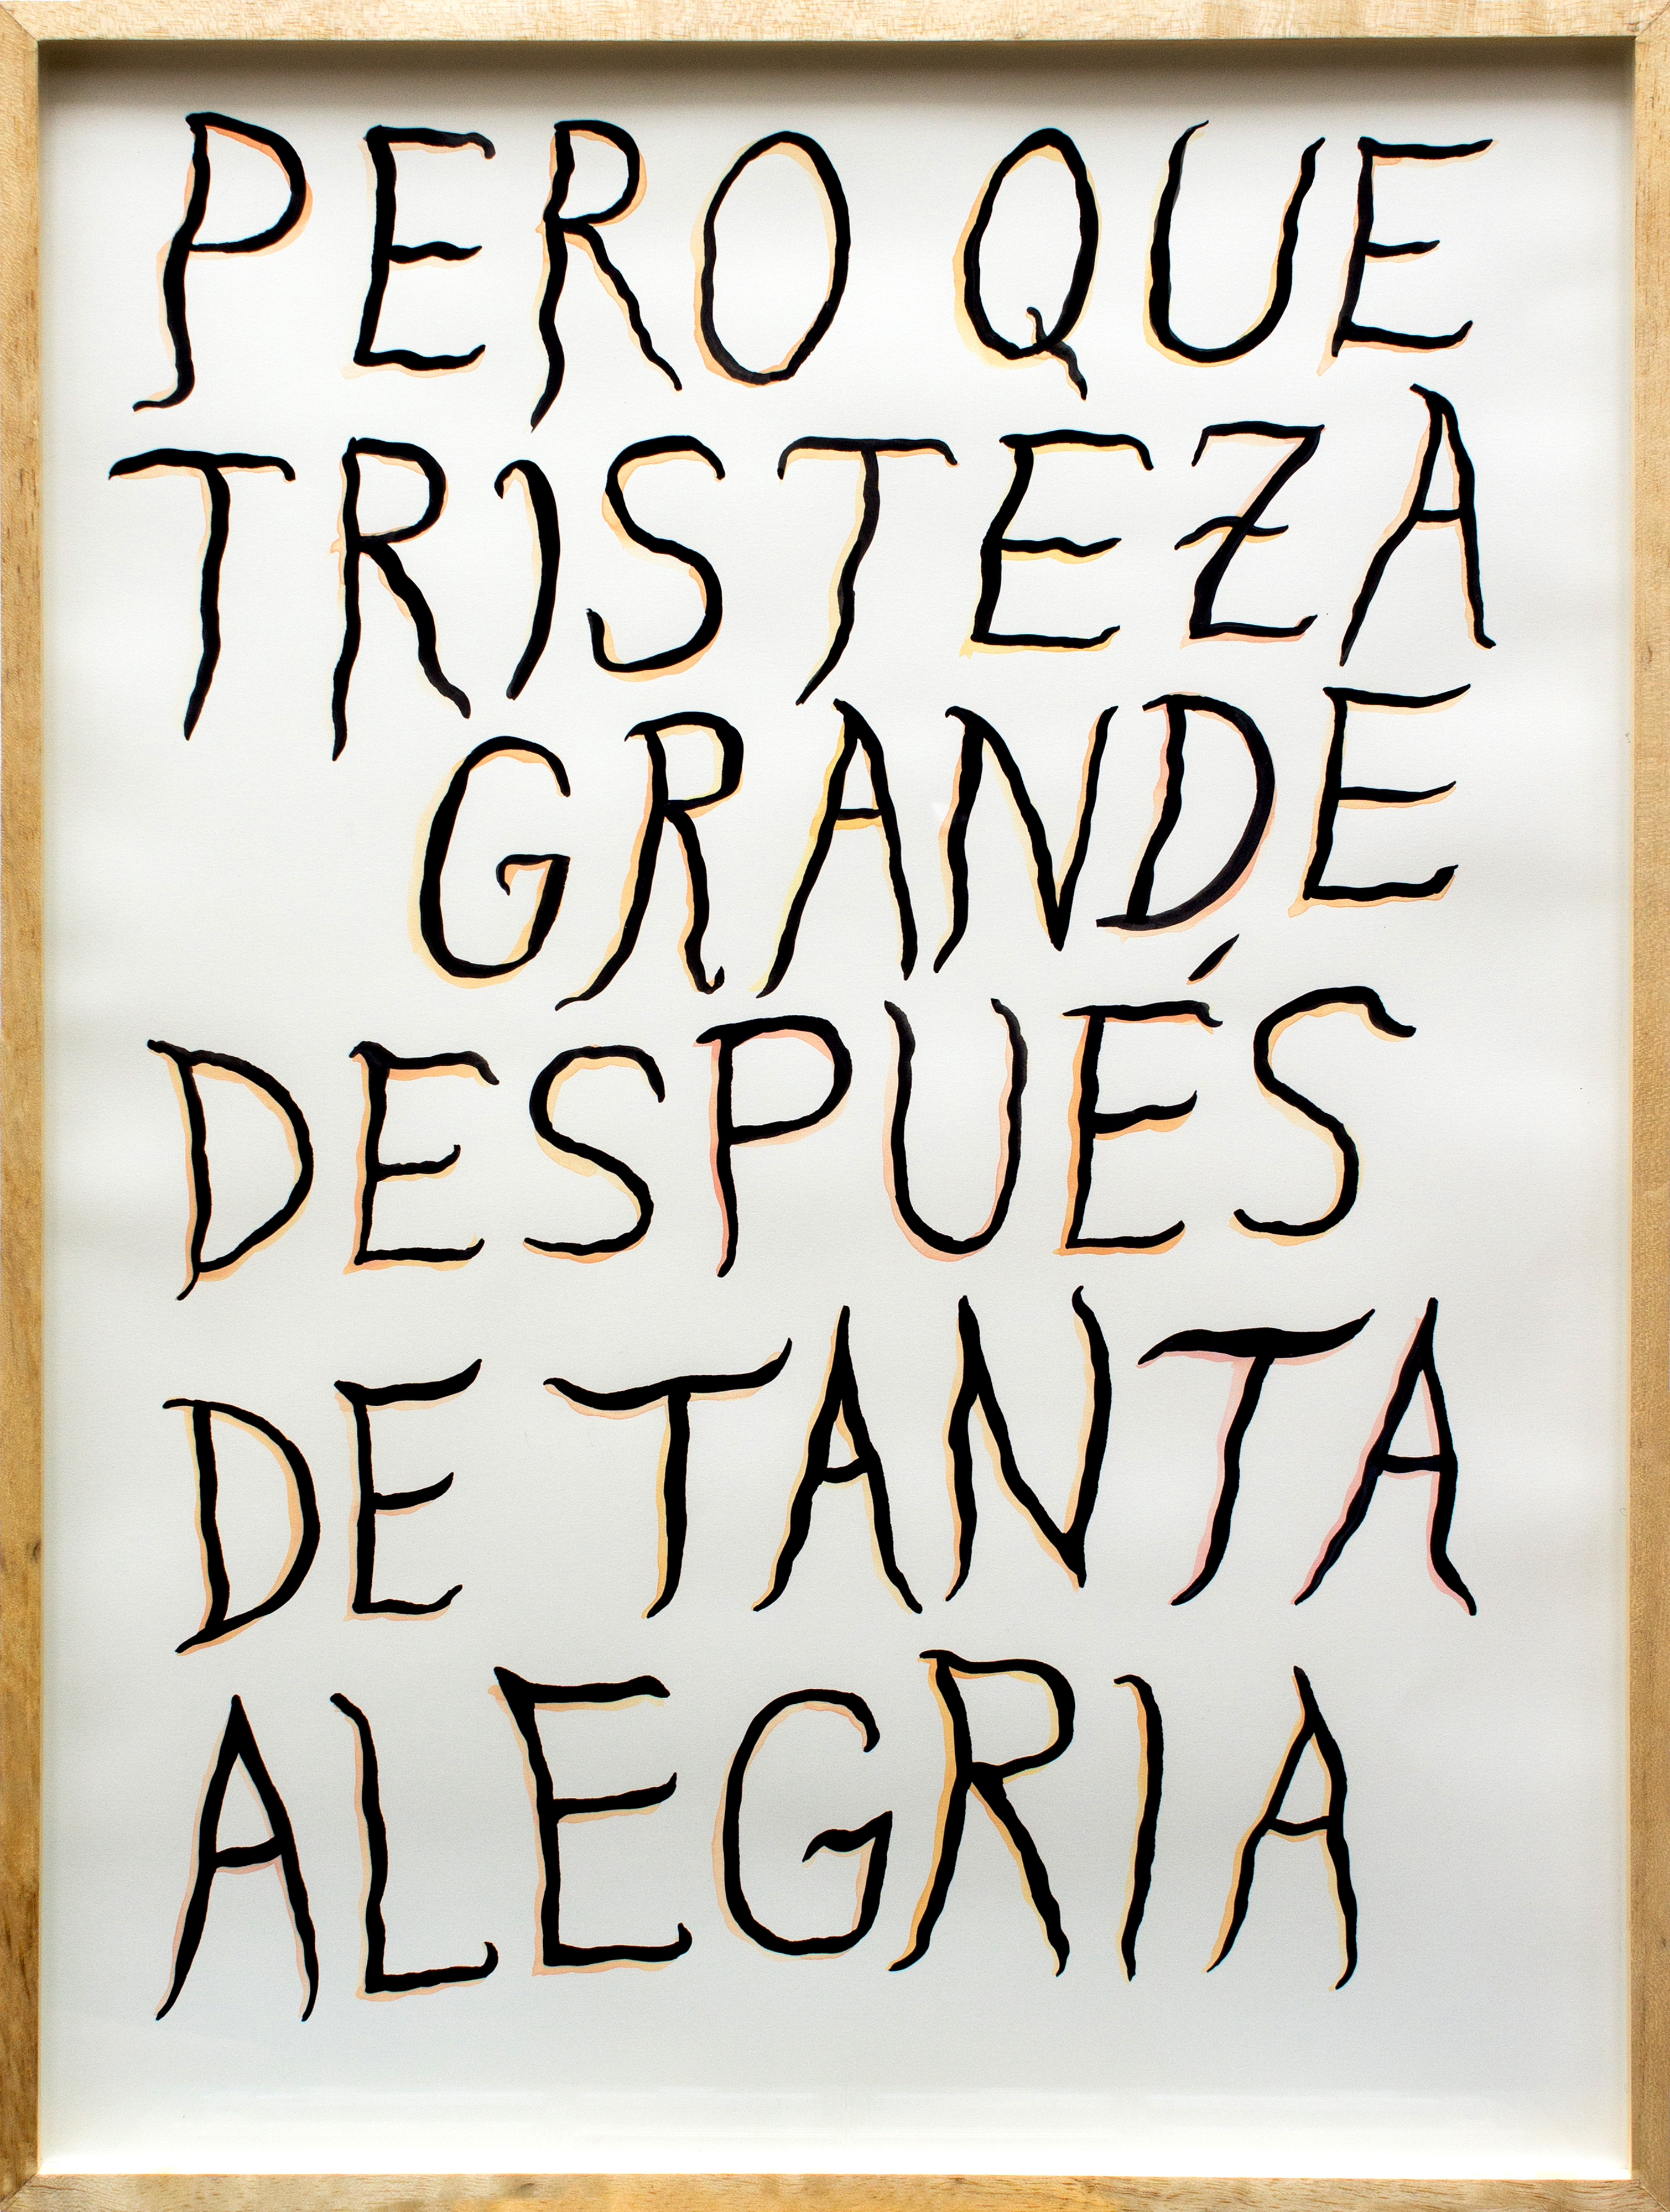 PERO QUE
TRISTEZA
GRANDE
DESPUÉS
DE TANTA
ALEGRIA